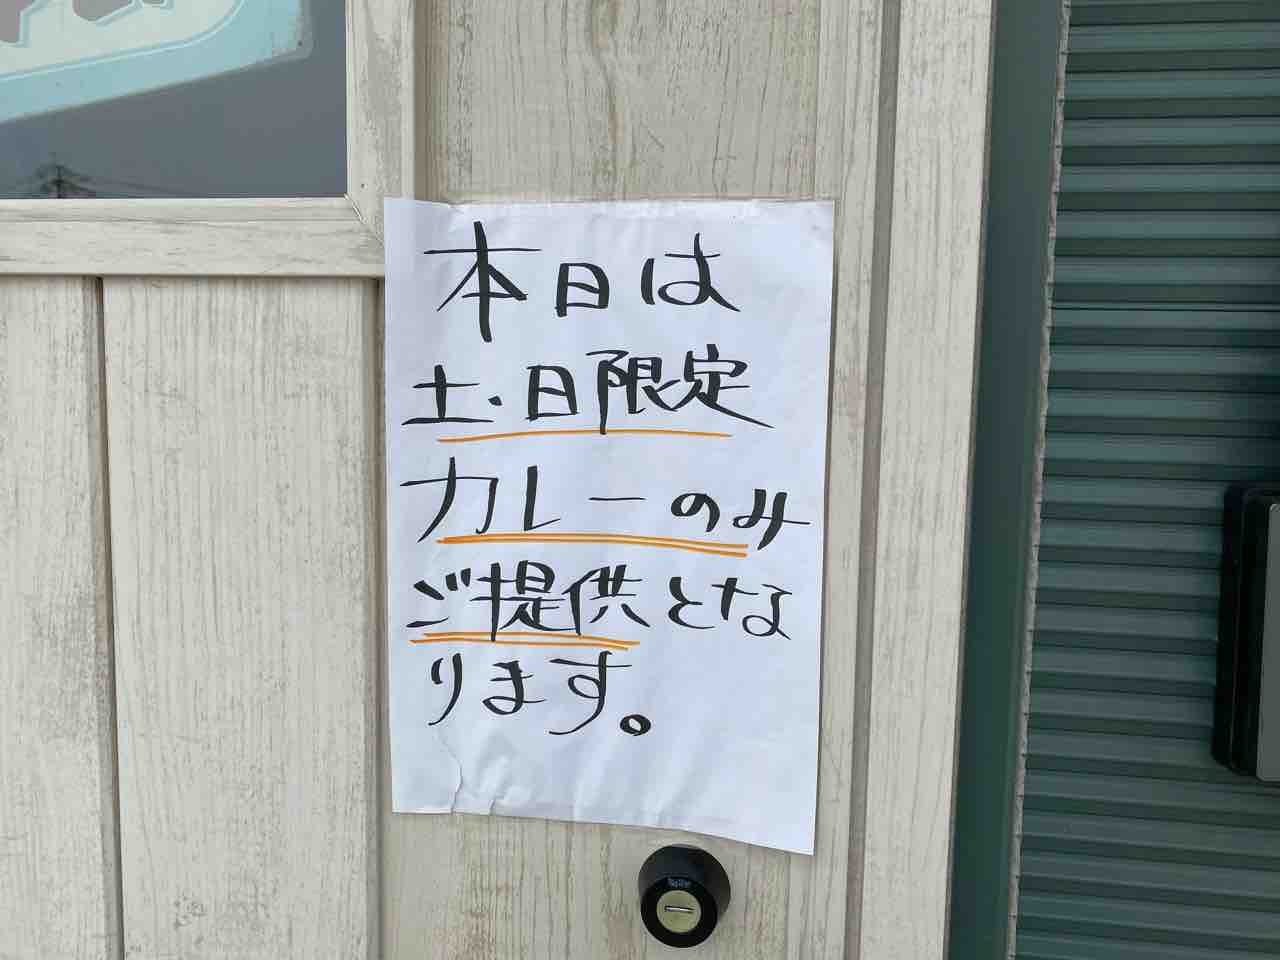 本日は
土・日限定
カレーのみ
ご提供とな
ります。